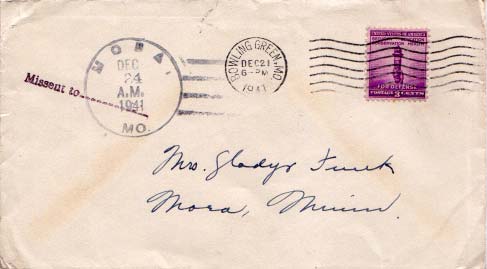 MORA
DEC
24
A.M.
1941
MO.
Missent to
BOWLING GREEN, MO
DEC 21
6-PM
1941
UNITED STATES OF AMERICA
FOR DEFENSE
POSTAGE 3 CENTS
Mrs. Gladys Funk
Mora, Minn.